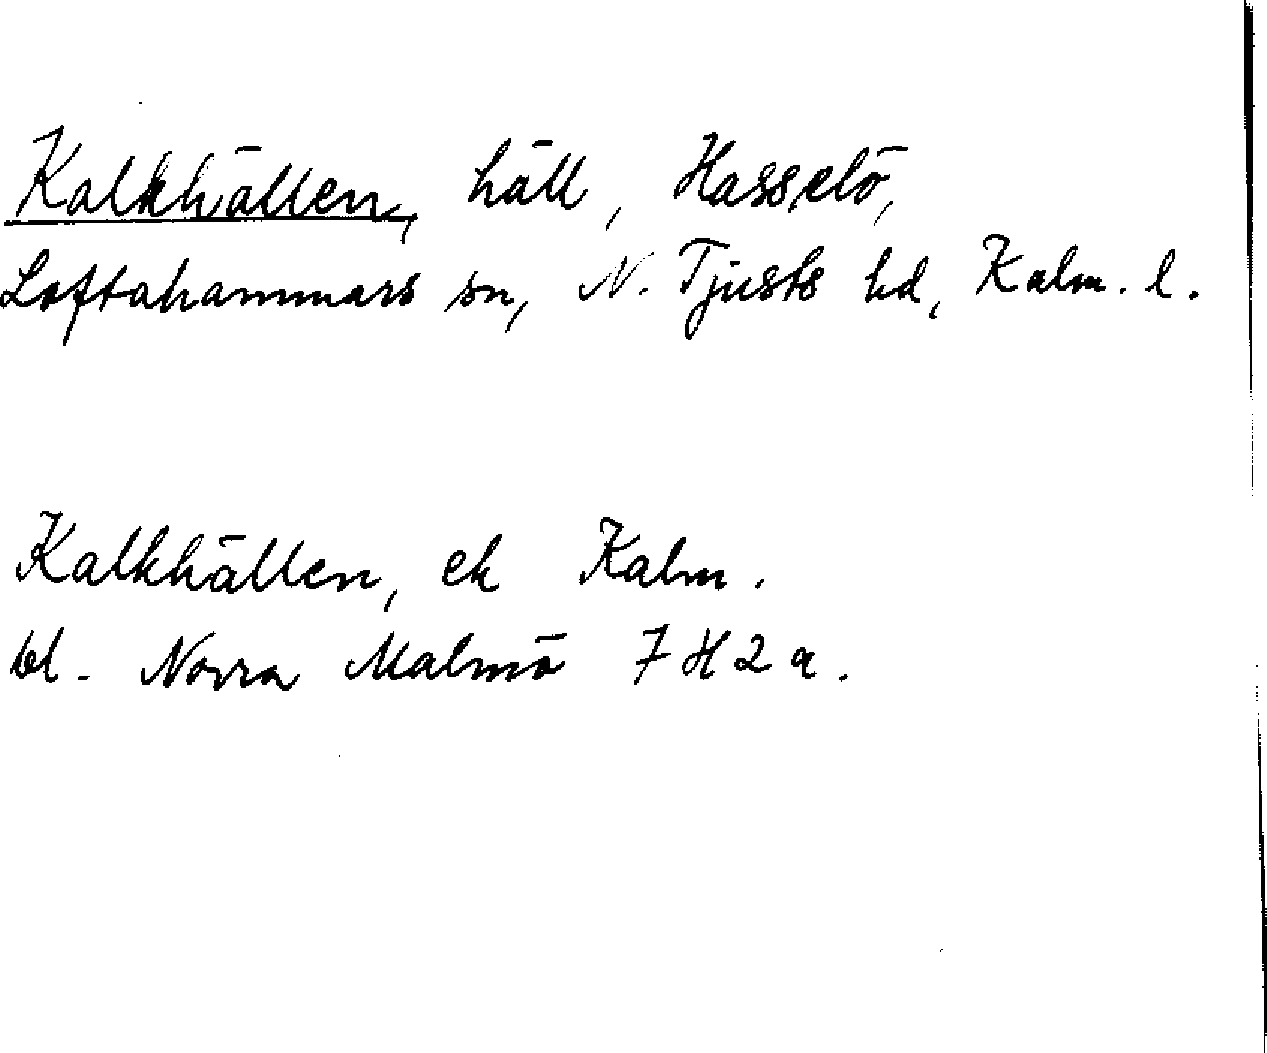 Kalkhällen, häll, Hasselö,
Loftahammars sn, N. Tjusts hd, Kalm. l.
Kalkhällen, ek Kalm.
bl. Norra Malmö 7H2a.